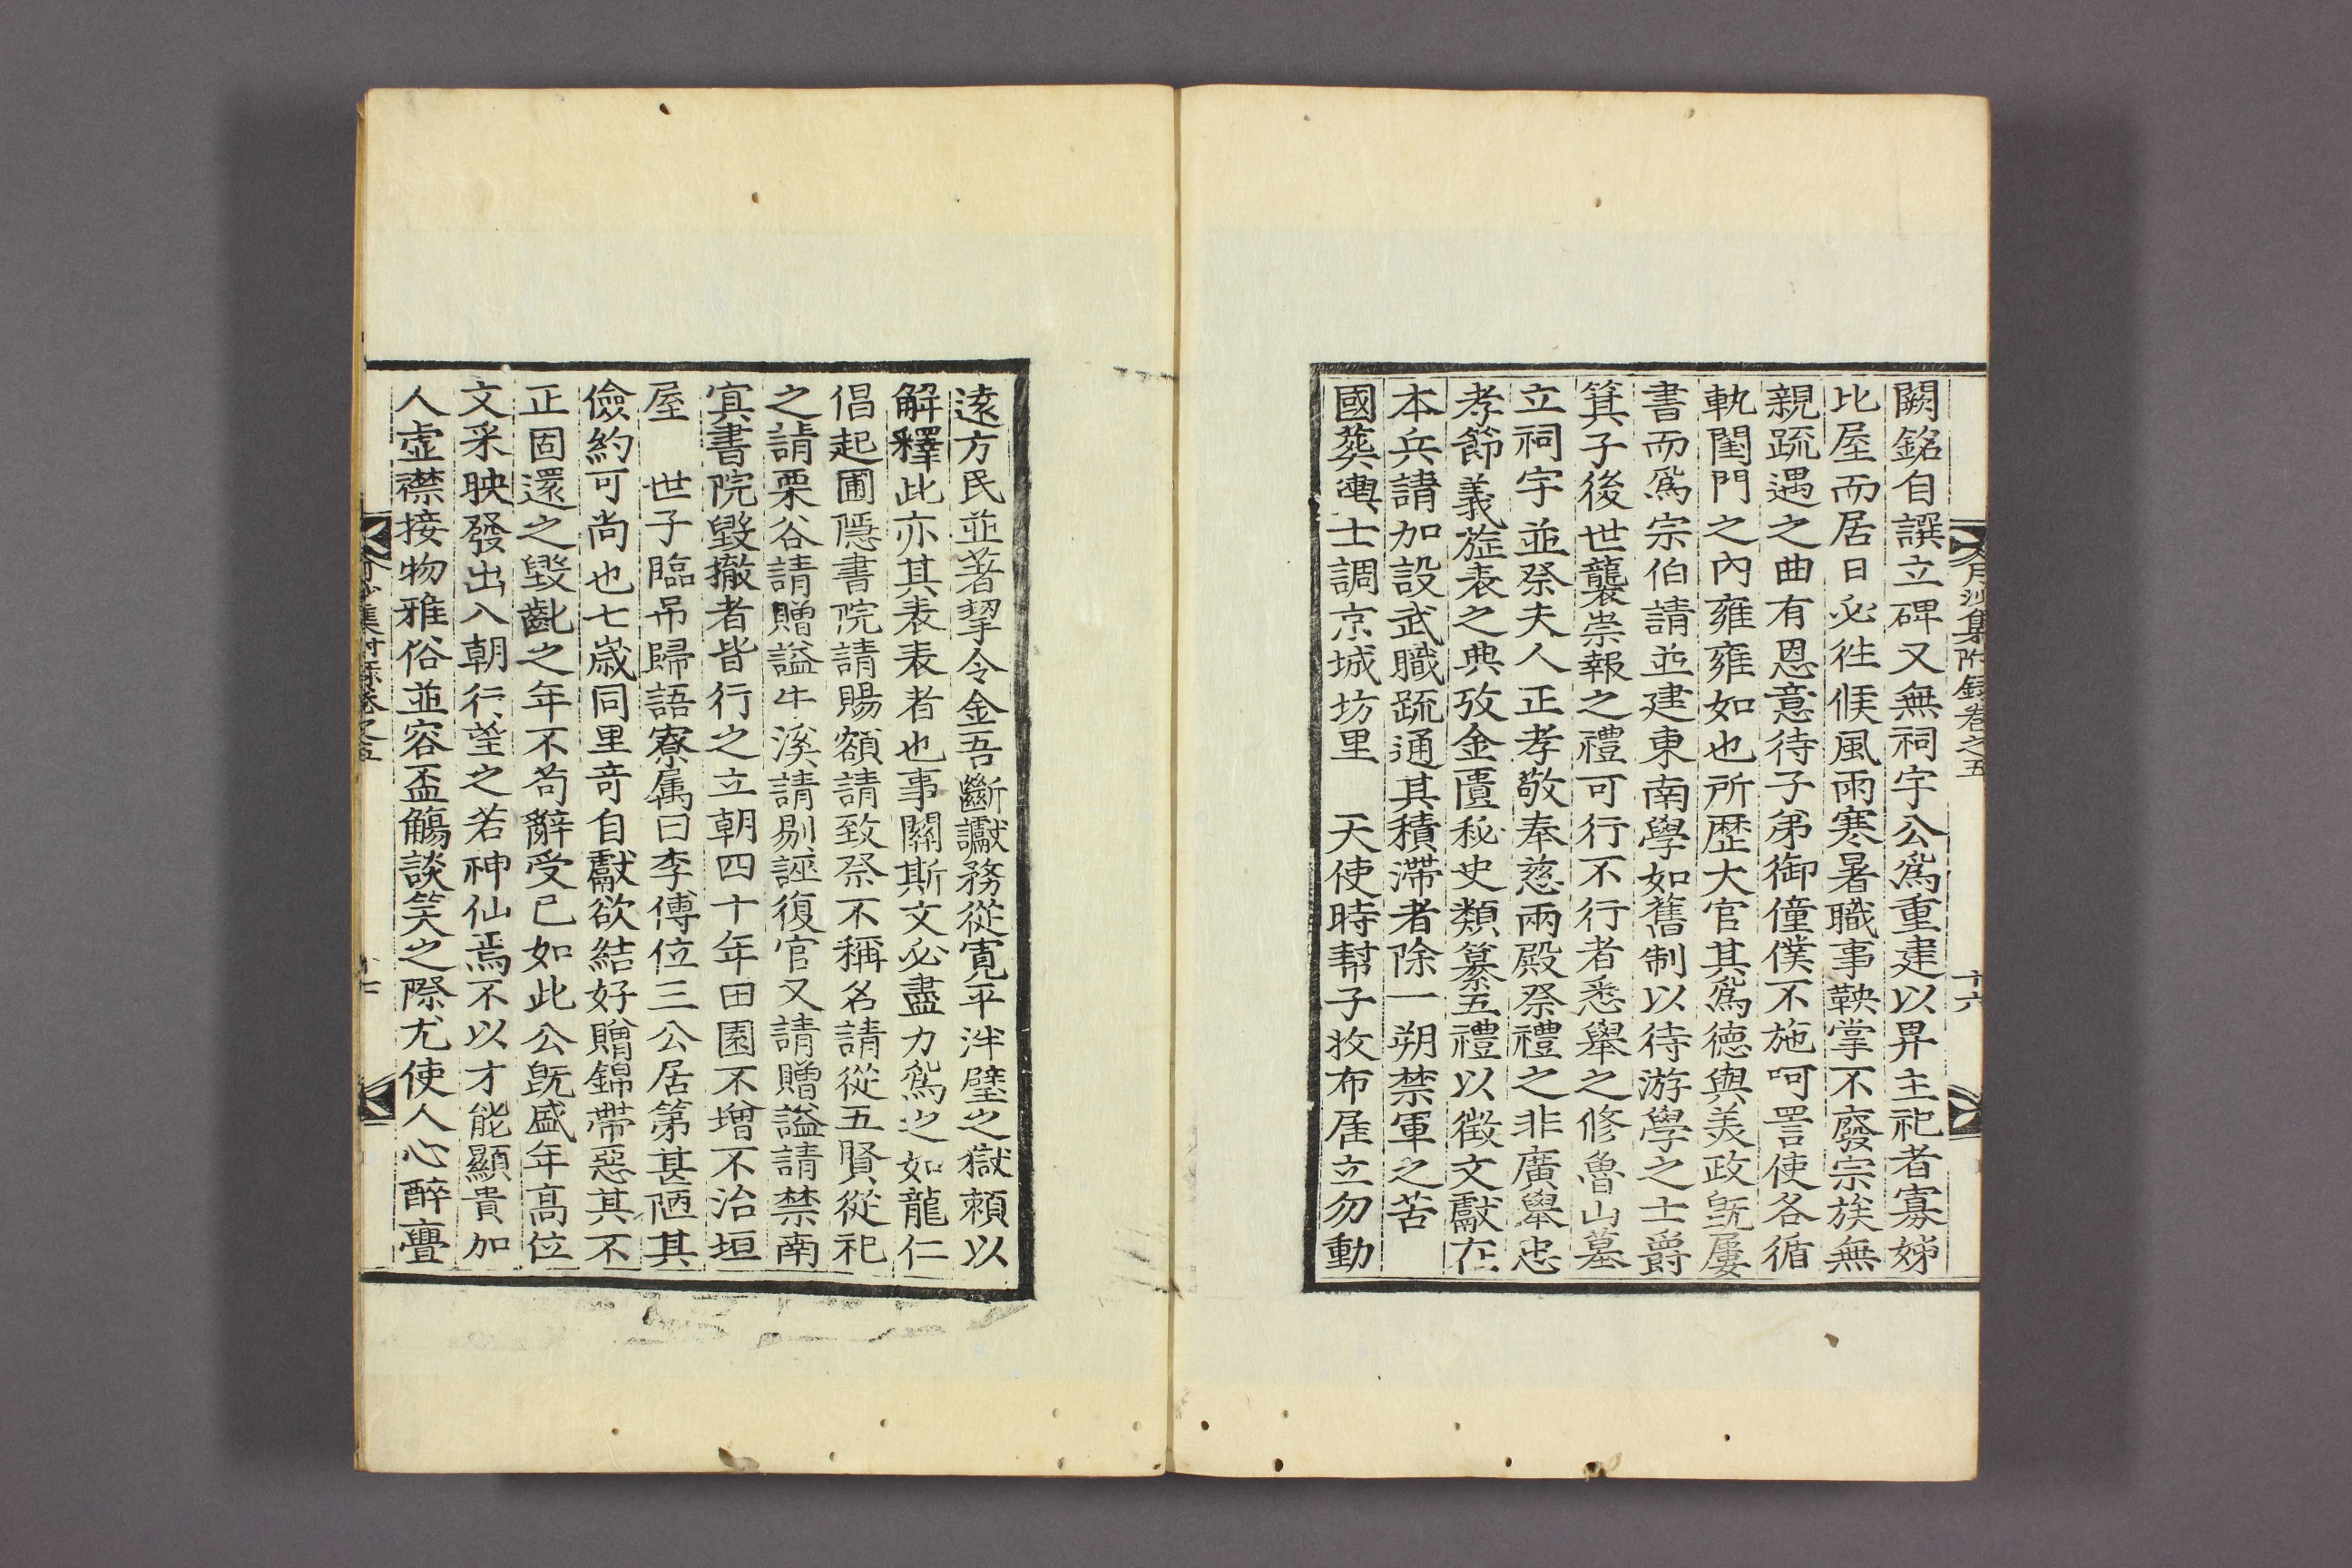 月沙集附錄卷之五 十六
闕銘自譔立碑又無祠宇公爲重建以昇主祀者寡姊
比屋而居日必徃候風雨寒暑職事鞅掌不廢宗族無
親疏遇之曲有恩意待子弟御僮僕不施呵詈使各循
軌閨門之內雍雍如也所歷大官其爲德與美政旣屢
書而爲宗伯請並建東南學如舊制以待游學之士爵
箕子後世襲崇報之禮可行不行者悉舉之修魯山墓
立祠宇並祭夫人正孝敬奉慈兩殿祭禮之非廣舉忠
孝節義旌表之典攷金匱秘史類纂五禮以徵文獻在
本兵請加設武職疏通其積滯者除一朔禁軍之苦
國葬轝士調京城坊里 天使時幇子收布雇立勿動
遠方民並著挈令金吾斷讞務從寬平泮璧之獄賴以
解釋此亦其表表者也事關斯文必盡力爲之如龍仁
倡起圃隱書院請賜額請致祭不稱名請從五賢從祀
之請栗谷請贈謚牛溪請剔誣復官又請贈謚請禁南
寘書院毀撤者皆行之立朝四十年田園不增不治垣
屋 世子臨吊歸語寮属曰李傅位三公居第甚陋其
儉約可尚也七歲同里竒自獻欲結好贈錦帶惡其不
正固還之毀齔之年不苟辭受已如此公旣盛年高位
文采映發出入朝行望之若神仙焉不以才能顯貴加
人虛襟接物雅俗並容盃觴談笑之際尤使人心醉亹